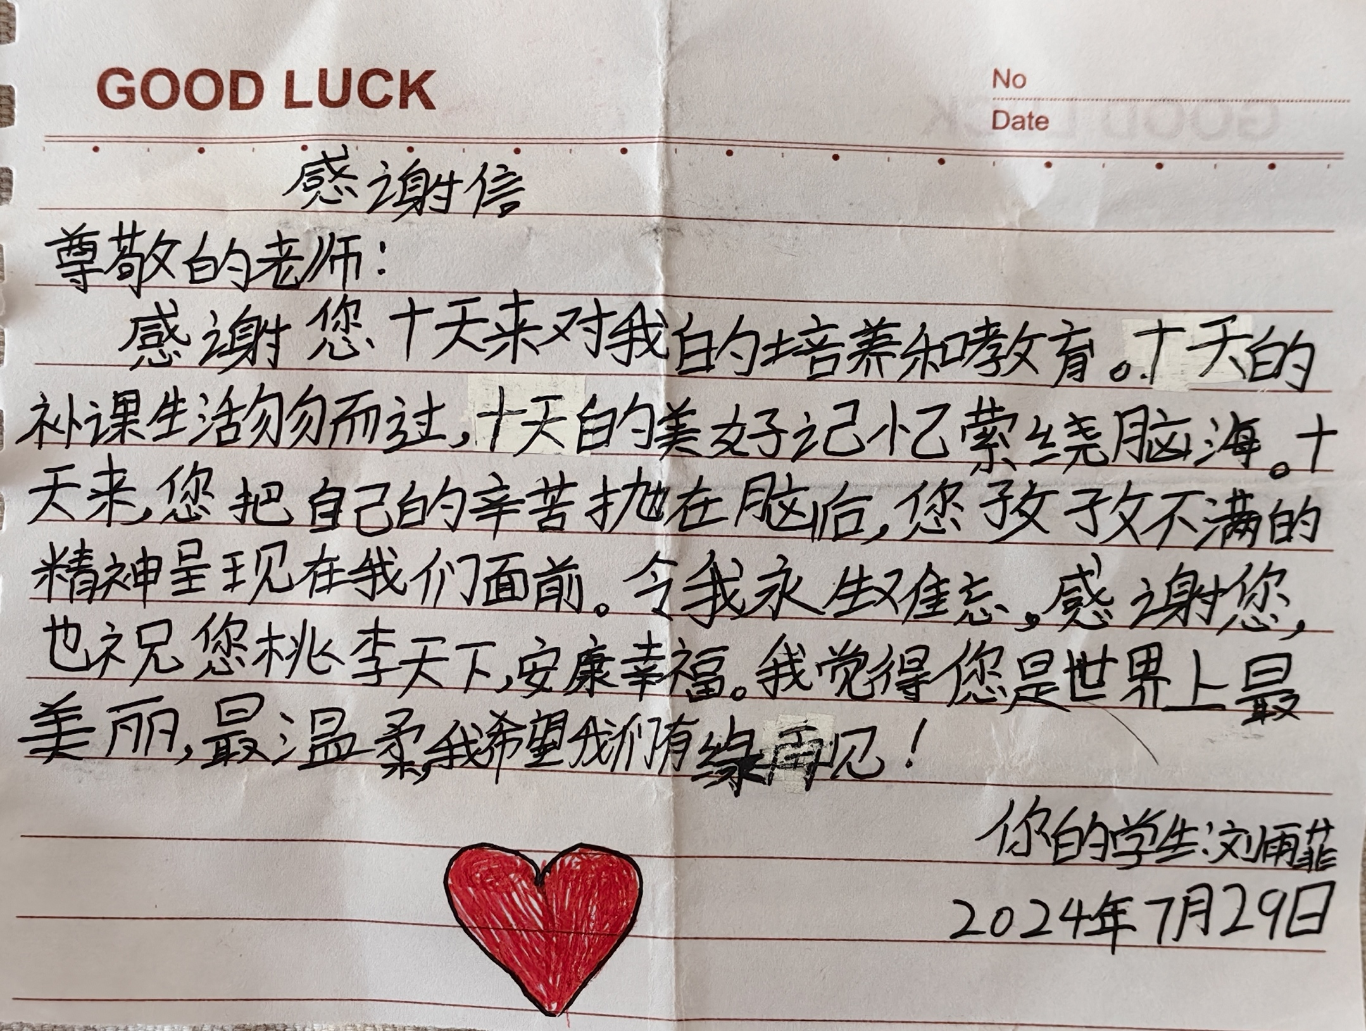 GOOD LUCK
No
Date
感谢信
尊敬的老师：
感谢您十天来对我的培养和教育。十天的
补课生活匆匆而过，十天的美好记忆萦绕脑海。十
天来，您把自己的辛苦抛在脑后，您孜孜不满的
精神呈现在我们面前。令我永生难忘。感谢您，
也祝您桃李天下，安康幸福。我觉得您是世界上最
美丽，最温柔，我希望我们有缘再见！
你的学生：刘雨菲
2024年7月29日